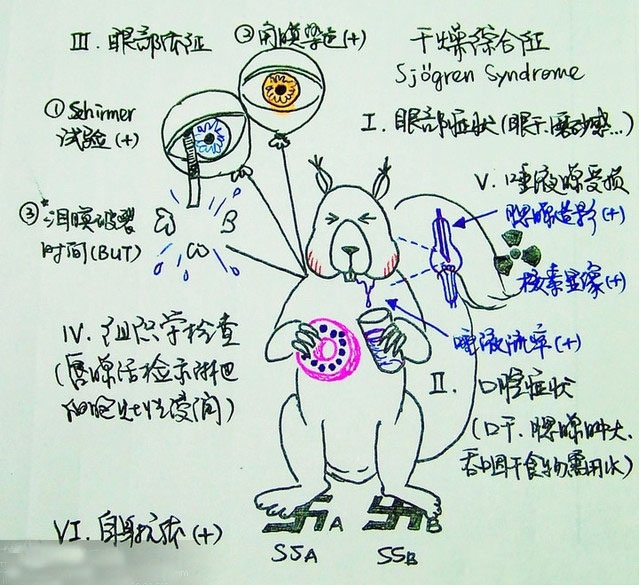 干燥综合征
Sjögren Syndrome
I. 眼部症状(眼干、磨砂感...)
II. 口腔症状
(口干、腮腺肿大、
吞咽干食物需用水)
III. 眼部体征
① Schirmer
试验(+)
② 角膜染色(+)
③*泪膜破裂
时间(BUT)
B
IV. 组织学检查
(唇腺活检示淋巴
细胞灶性浸润)
V. 唾液腺受损
腮腺造影(+)
核素显像(+)
唾液流率(+)
VI. 自身抗体(+)
A
B
SSA
SSB